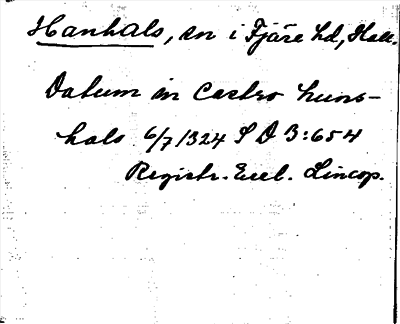 Hanhals, sn i Fjäre hd, Hall.
Datum in Castro huns-
hals 6/7 1324 S D 3:654
Registr. Eccl. Lincop.